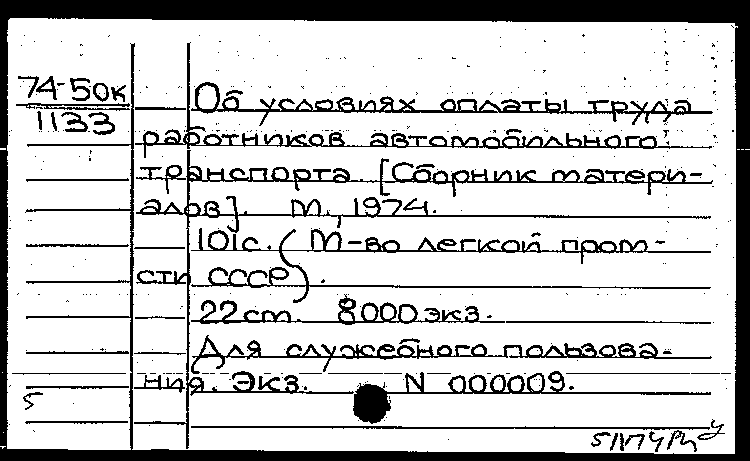 74-50к
1133
Об условиях оплаты труда
работников автомобильного
транспорта. [Сборник матери-
алов]. М., 1974.
101с. (М-во легкой пром-
сти СССР).
22 cm. 8000 экз.
Для служебного пользова-
ния. Экз. N 000009.
5